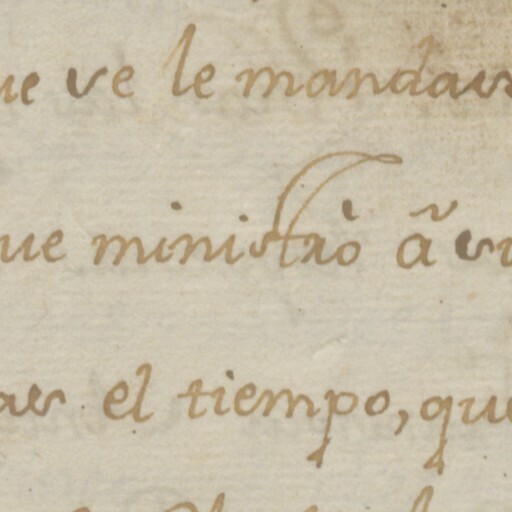 ue se le mandar
ue ministrò ã su
ar el tiempo, que